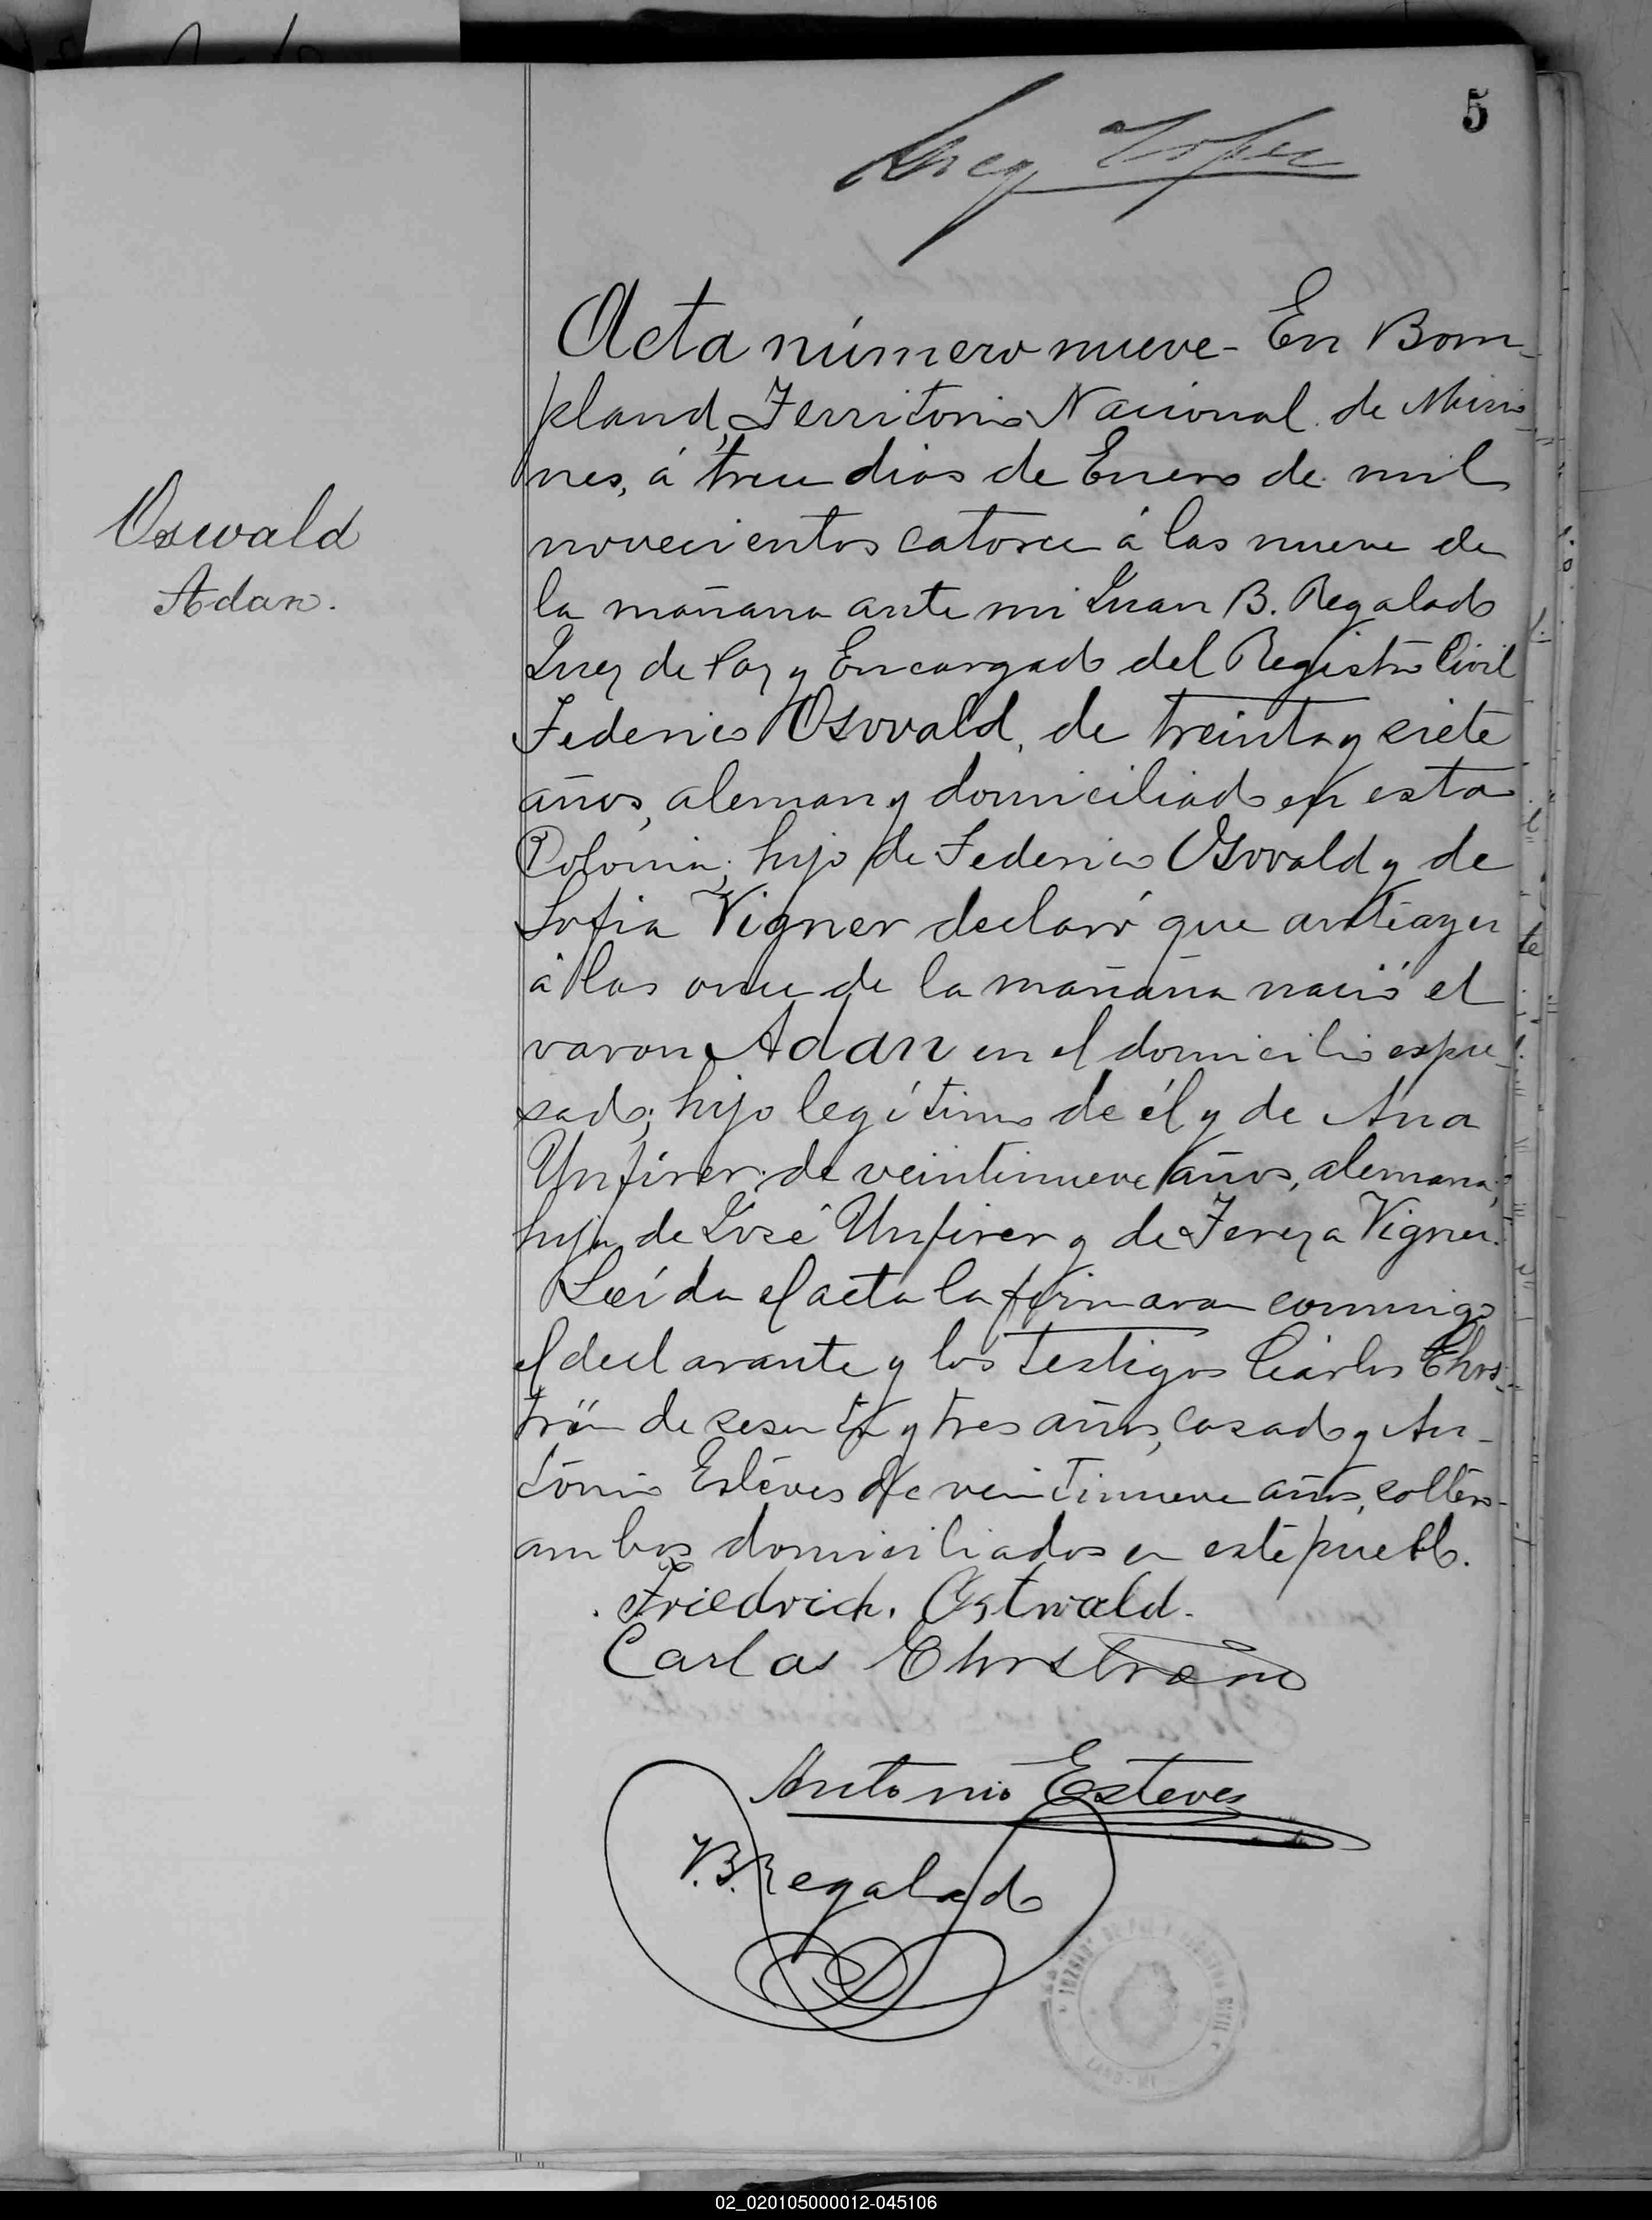 5
Acta número nueve - En Bom-
pland, Territorio Nacional de Misio-
nes, á trece dias de Enero de mil
novecientos catorce á las nueve de
Oswald
Adan.
la mañana ante mi Juan B. Regalado
Juez de Paz y Encargado del Registro Civil
Federico Oswald, de treinta y siete
años, aleman y domiciliado en esta
Colonia; hijo de Federico Oswald y de
Sofia Vigner declaró que antiayer
á las once de la mañana nació el
varon Adan en el domicilio expre-
sado; hijo legítimo de él y de Ana
Unfirer de veintinueve años, alemana,
hija de José Unfirer y de Tereza Vigner.
Leída el acta la firmaron conmigo
el declarante y los testigos Cárlos Ehrs-
tröm de sesenta y tres años, casado y An-
tonio Estéves de veintinueve años, soltero-
ambos domiciliados en este pueblo.
Friedrich. Ostwald.
Carlos Ehrström
Antonio Esteves
J.B. Regalado
JUZGADO DE PAZ Y REGISTRO CIVIL
02_020105000012-045106